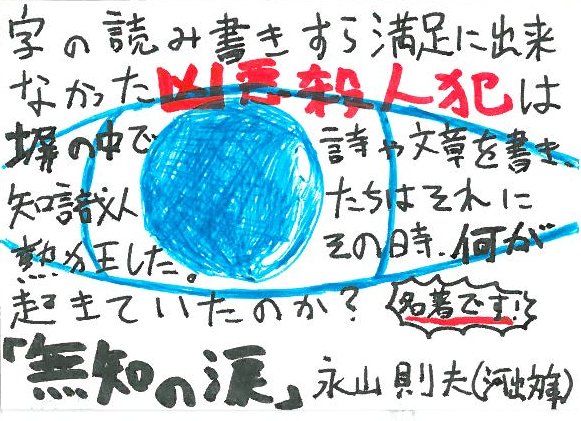 字の読み書きすら満足に出来
なかった凶悪殺人犯は
塀の中で詩や文章を書き
知識人たちはそれに
熱狂した。その時、何が
起きていたのか?
名著です!
「無知の涙」永山則夫(河出文庫)